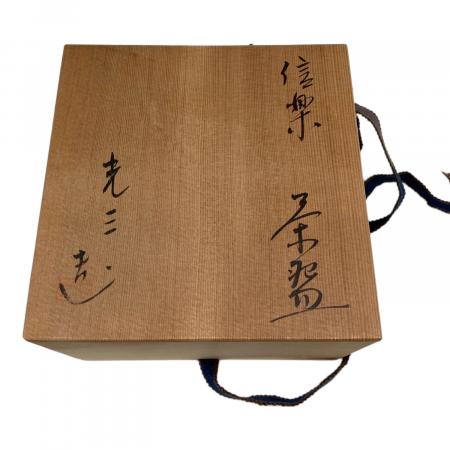 信楽 茶盌
光三造